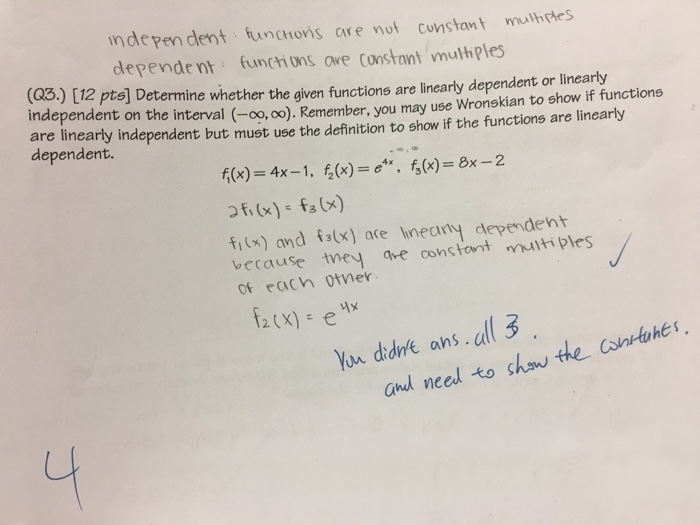 independent: functions are not constant multiples
dependent: functions are constant multiples
(Q3.) [12 pts] Determine whether the given functions are linearly dependent or linearly
independent on the interval (−∞,∞). Remember, you may use Wronskian to show if functions
are linearly independent but must use the definition to show if the functions are linearly
dependent.
f₁(x) = 4x−1, f₂(x) = e⁴ˣ, f₃(x) = 8x−2
2f₁(x) = f₃(x)
f₁(x) and f₃(x) are linearly dependent
because they are constant multiples ✓
of each other.
f₂(x) = e⁴ˣ
You didn't ans. all 3.
and need to show the constants.
4